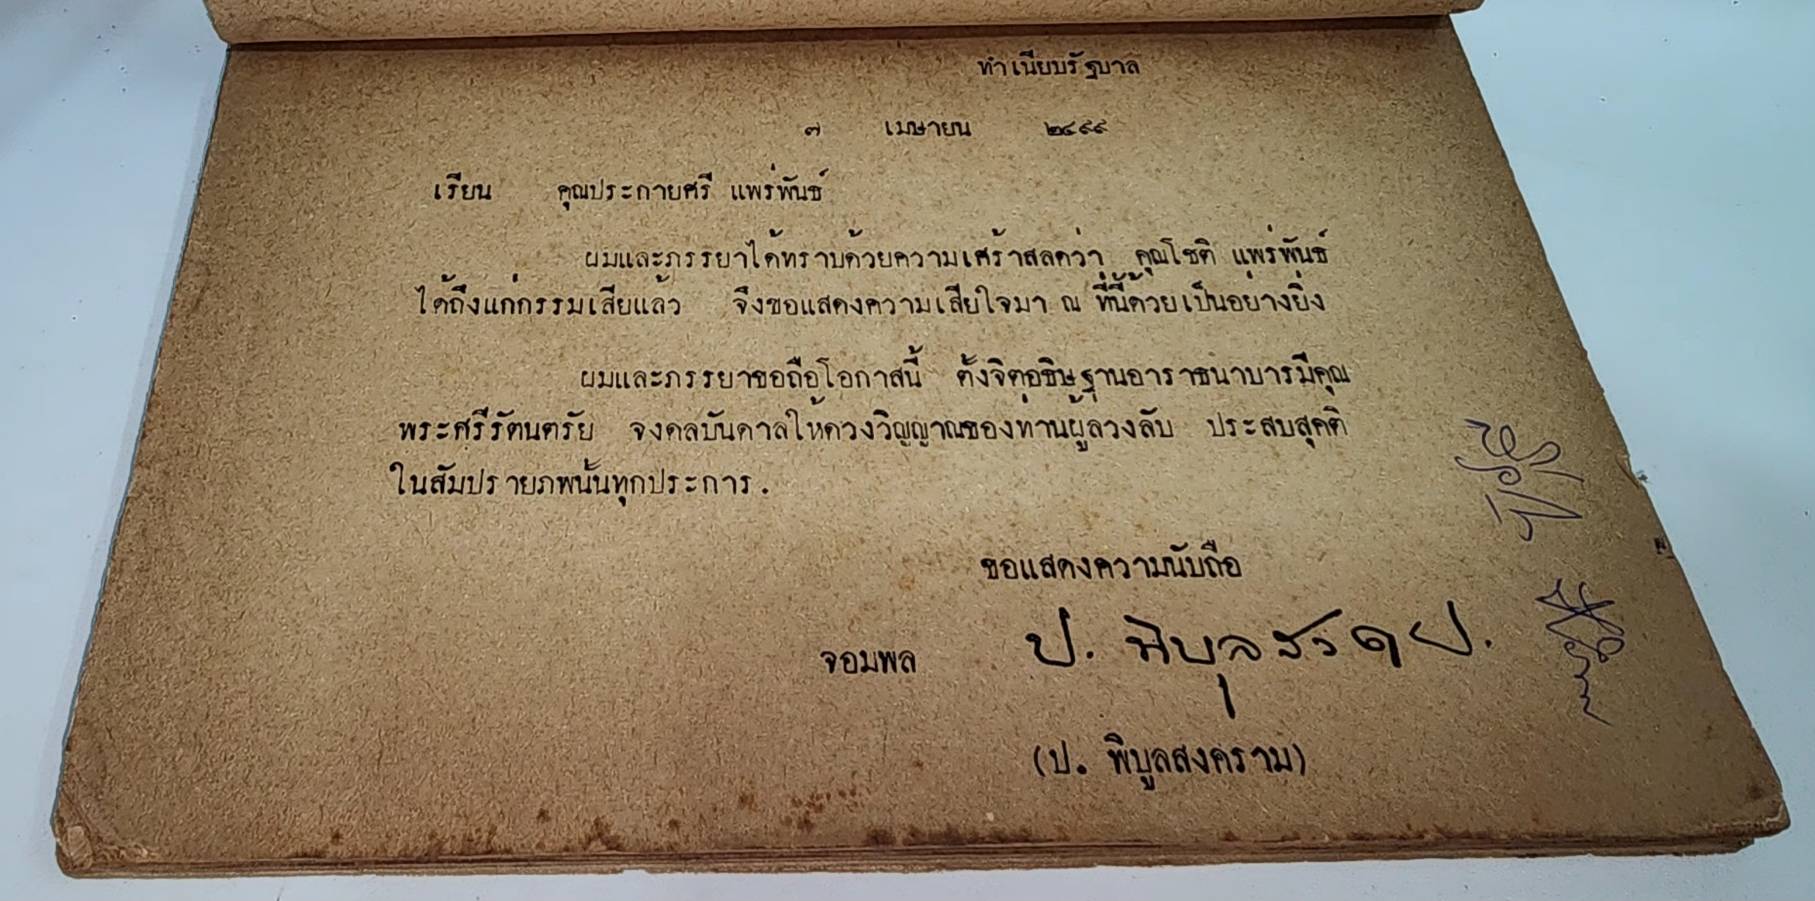 ทำเนียบรัฐบาล
๗ เมษายน ๒๔๙๙
เรียน คุณประกายศรี แพร่พันธ์
ผมและภรรยาได้ทราบด้วยความเศร้าสลดว่า คุณโชติ แพร่พันธ์
ได้ถึงแก่กรรมเสียแล้ว จึงขอแสดงความเสียใจมา ณ ที่นี้ด้วยเป็นอย่างยิ่ง
ผมและภรรยาขอถือโอกาสนี้ ตั้งจิตอธิษฐานอาราธนาบารมีคุณ
พระศรีรัตนตรัย จงดลบันดาลให้ดวงวิญญาณของท่านผู้ล่วงลับ ประสบสุคติ
ในสัมปรายภพนั้นทุกประการ.
ขอแสดงความนับถือ
จอมพล ป. พิบูลสงคราม
(ป. พิบูลสงคราม)